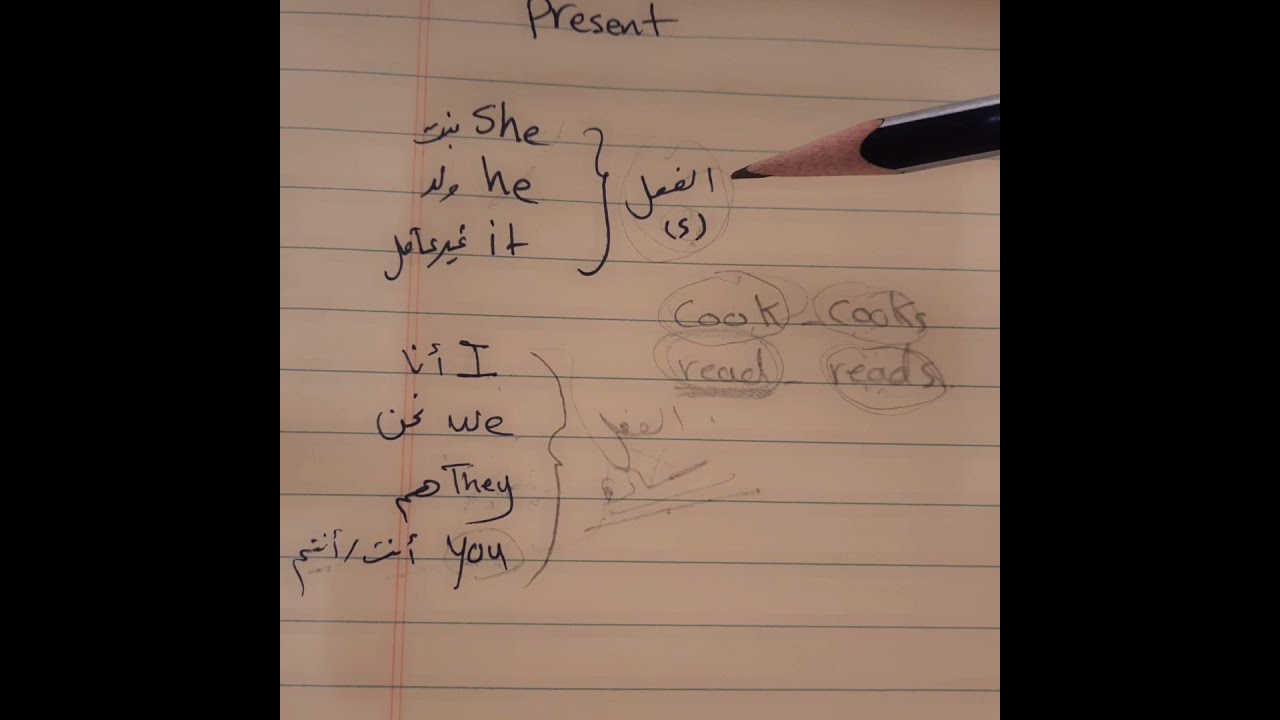 Present
بنت She
ولد he
غير عاقل it
الفعل
(s)
cook - cooks
read - reads
أنا I
نحن we
هم They
أنت/أنتم you
الفعل